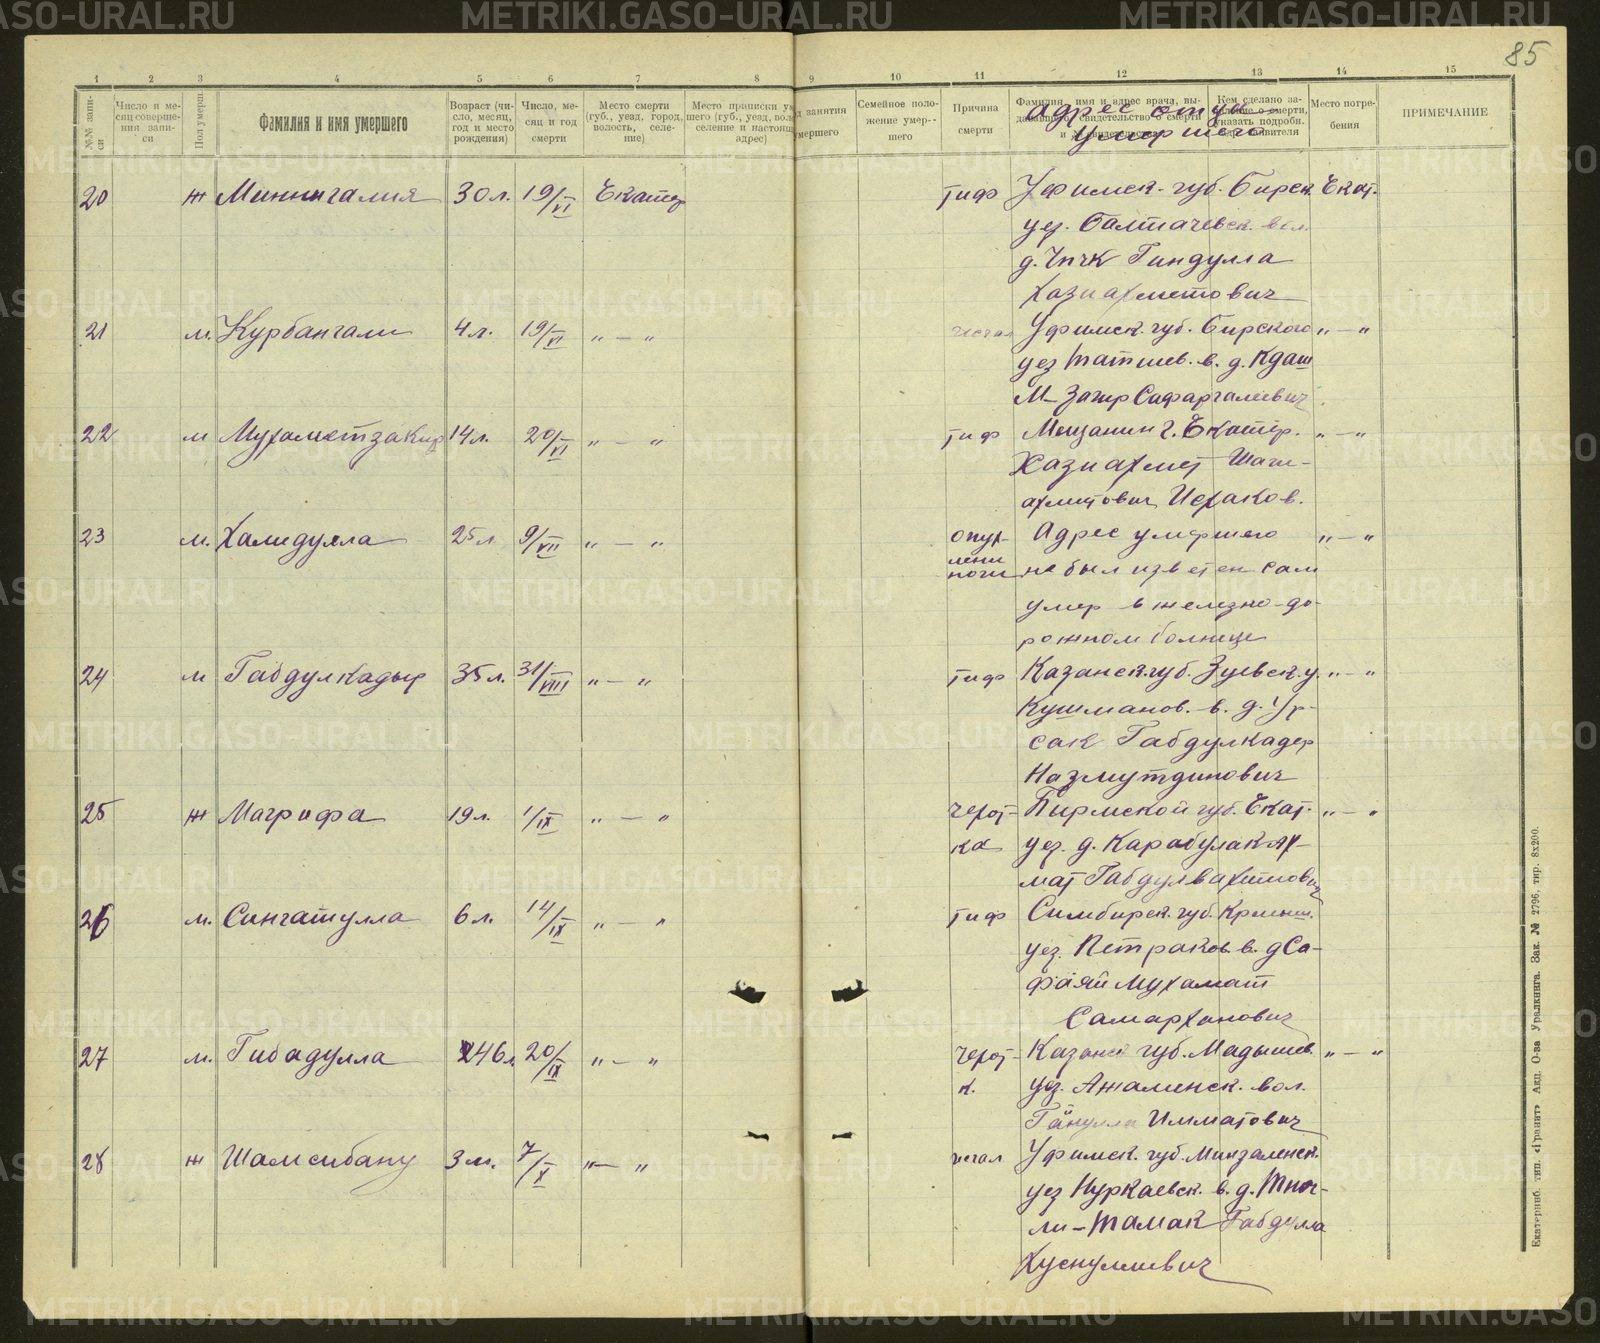 85
1 2 3 4 5 6 7 8 9 10 11 12 13 14 15
№№ записи
Число и месяц совершения записи
Пол умерш.
Фамилия и имя умершего
Возраст (число, месяц, год и место рождения)
Число, месяц и год смерти
Место смерти (губ., уезд, город, волость, селение)
Место приписки ум
шего (губ., уезд, вол
селение и настоящ
адрес)
д занятия
умершего
Семейное положение умер--шего
Причина смерти
Фамилия, имя и адрес врача, вы-
свидетельство о смерти
Кем сделано за-
о смерти,
указать подробн.
Место погребения
ПРИМЕЧАНИЕ
адрес отцы
умершего
20 ж Миннигалия 30 л. 19/VI Екатер тиф Уфимск. губ. Бирск. Екат.
уез. Балтачевск. вол.
д. Чпчк Гиндулла
Хазиахметович
21 м. Курбангали 4 л. 19/VI „ — „ Уфимск. губ. Бирского „ — „
уез Татшев. в. д. Кдаш
М- Загир Сафаргалеевич
22 м Мухаметзакир 14 л. 20/VI „ — „ тиф Мещанин г. Екатер. „ — „
Хазиахмет Шаги-
ахметович Исхаков.
23 м. Хамидулла 25 л 9/VII „ — „ опух- Адрес умершего „ — „
лени
ноги не был известен сам
умер в железно-до-
рожном болнице
24 м Габдулкадыр 35 л. 31/VIII „ — „ тиф Казанск. губ. Зуевск. у. „ — „
Кушманов. в. д. Ур-
сак Габдулкадер
Назмутдинович
25 ж Магрифа 19 л. 1/IX „ — „ чехот- Пермской губ. Екат. „ — „
ка уез. д. Карабулак Ах-
мат Габдулвахитович
26 м. Сингатулла 6 л. 14/IX „ — „ тиф Симбирск. губ. Крмыш.
уез. Петраков. в. д Са-
фаяй Мухамат
Самарханович
27 м. Гибадулла 46 л. 20/IX „ — „ чехот- Казанс губ. Мадышев. „ — „
к. уез. Ажаминск. вол.
Имматович
28 ж Шамсибану 3 м. 7/X „ — „ исхал Уфимск. губ. Минзаленск.
уез Нуркаевск. в. д. Тноч-
ли - Тамак Габдулла
Хуснуллиевич
Екатеринб. тип. «Гранит» Акц. О-ва Уралкнига. Зак. № 2796, тир. 8х200.
METRIKI.GASO-URAL.RU